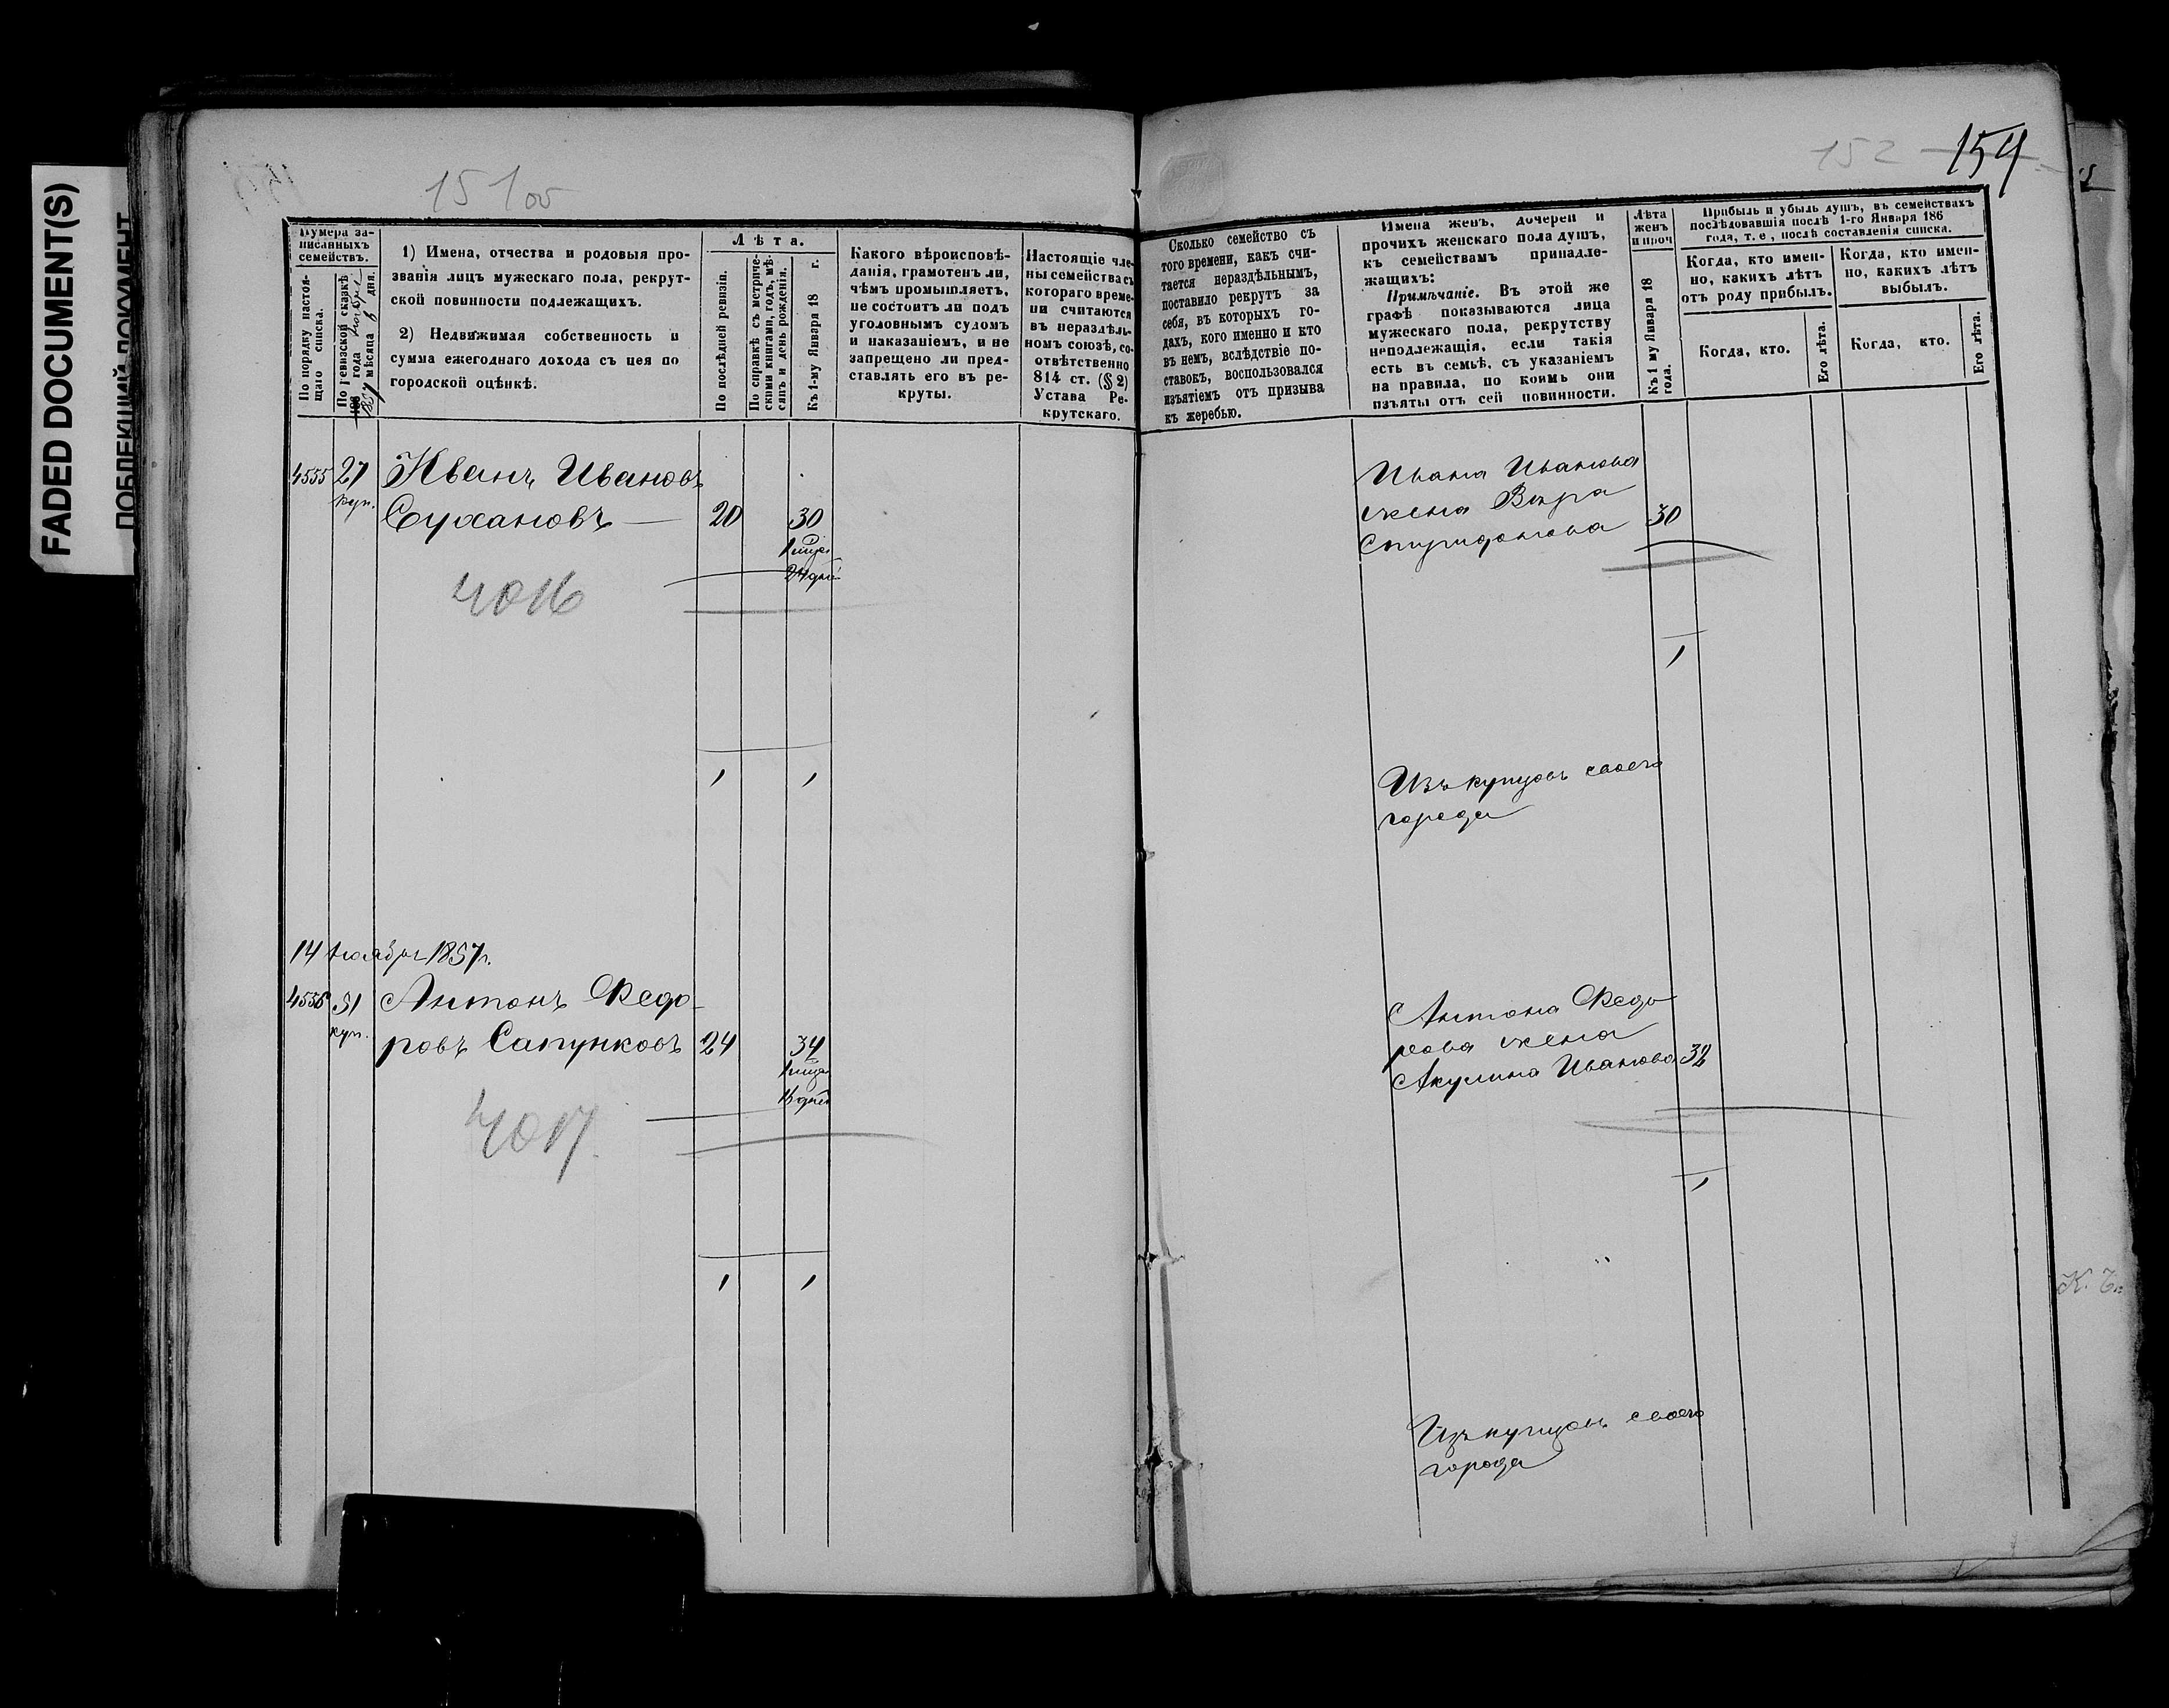 FADED DOCUMENT(S)
151 об
152 154
Нумера за-
писанныхъ
семействъ.
По порядку настоя-
щаго списка.
По Ревизской сказкѣ
года
мѣсяца дня.
1) Имена, отчества и родовыя про-
званія лицъ мужескаго пола, рекрут-
ской повинности подлежащихъ.
2) Недвижимая собственность и
сумма ежегоднаго дохода съ нея по
городской оцѣнкѣ.
Лѣта.
По послѣдней ревизіи.
По справкѣ съ метриче-
скими книгами, годъ, мѣ-
сяцъ и день рожденія.
Къ 1-му Января 18 г.
Какого вѣроисповѣ-
данія, грамотенъ ли,
чѣмъ промышляетъ,
не состоитъ ли подъ
уголовнымъ судомъ
и наказаніемъ, и не
запрещено ли пред-
ставлять его въ ре-
круты.
Настоящіе чле-
ны семейства съ
котораго време-
ни считаются
въ нераздѣль-
номъ союзѣ, со-
отвѣтственно
814 ст. (§ 2)
Устава Ре-
крутскаго.
Сколько семейство съ
того времени, какъ счи-
тается нераздѣльнымъ,
поставило рекрутъ за
себя, въ которыхъ го-
дахъ, кого именно и кто
въ немъ, вслѣдствіе по-
ставокъ, воспользовался
изъятіемъ отъ призыва
къ жеребью.
Имена женъ, дочерей и
прочихъ женскаго пола душъ,
къ семействамъ принадле-
жащихъ:
Примѣчаніе. Въ этой же
графѣ показываются лица
мужескаго пола, рекрутству
неподлежащія, если такія
есть въ семьѣ, съ указаніемъ
на правила, по коимъ они
изъяты отъ сей повинности.
Лѣта
женъ
и проч
Къ 1 му Января 18
года.
Прибыль и убыль душъ, въ семействахъ
послѣдовавшія послѣ 1-го Января 186
года, т. е., послѣ составленія списка.
Когда, кто имен-
но, какихъ лѣтъ
отъ роду прибылъ.
Когда, кто имен-
но, какихъ лѣтъ
выбылъ.
Когда, кто.
Его лѣта.
Когда, кто.
Его лѣта.
4535 27 Иванъ Ивановъ
куп. Сухановъ — 20 30
24 дня
4016
Ивана Иванова
жена Вѣра
Спиридонова 30
1
1 1
Изъ купцовъ своего
города
14 Ноября 1857 г.
4536 51 Антонъ Федо-
куп. ровъ Сапунковъ 24 34
4017
Антона Федо
рова жена
Акулина Иванова 32
1
1 1
Изъ купцовъ своего
города